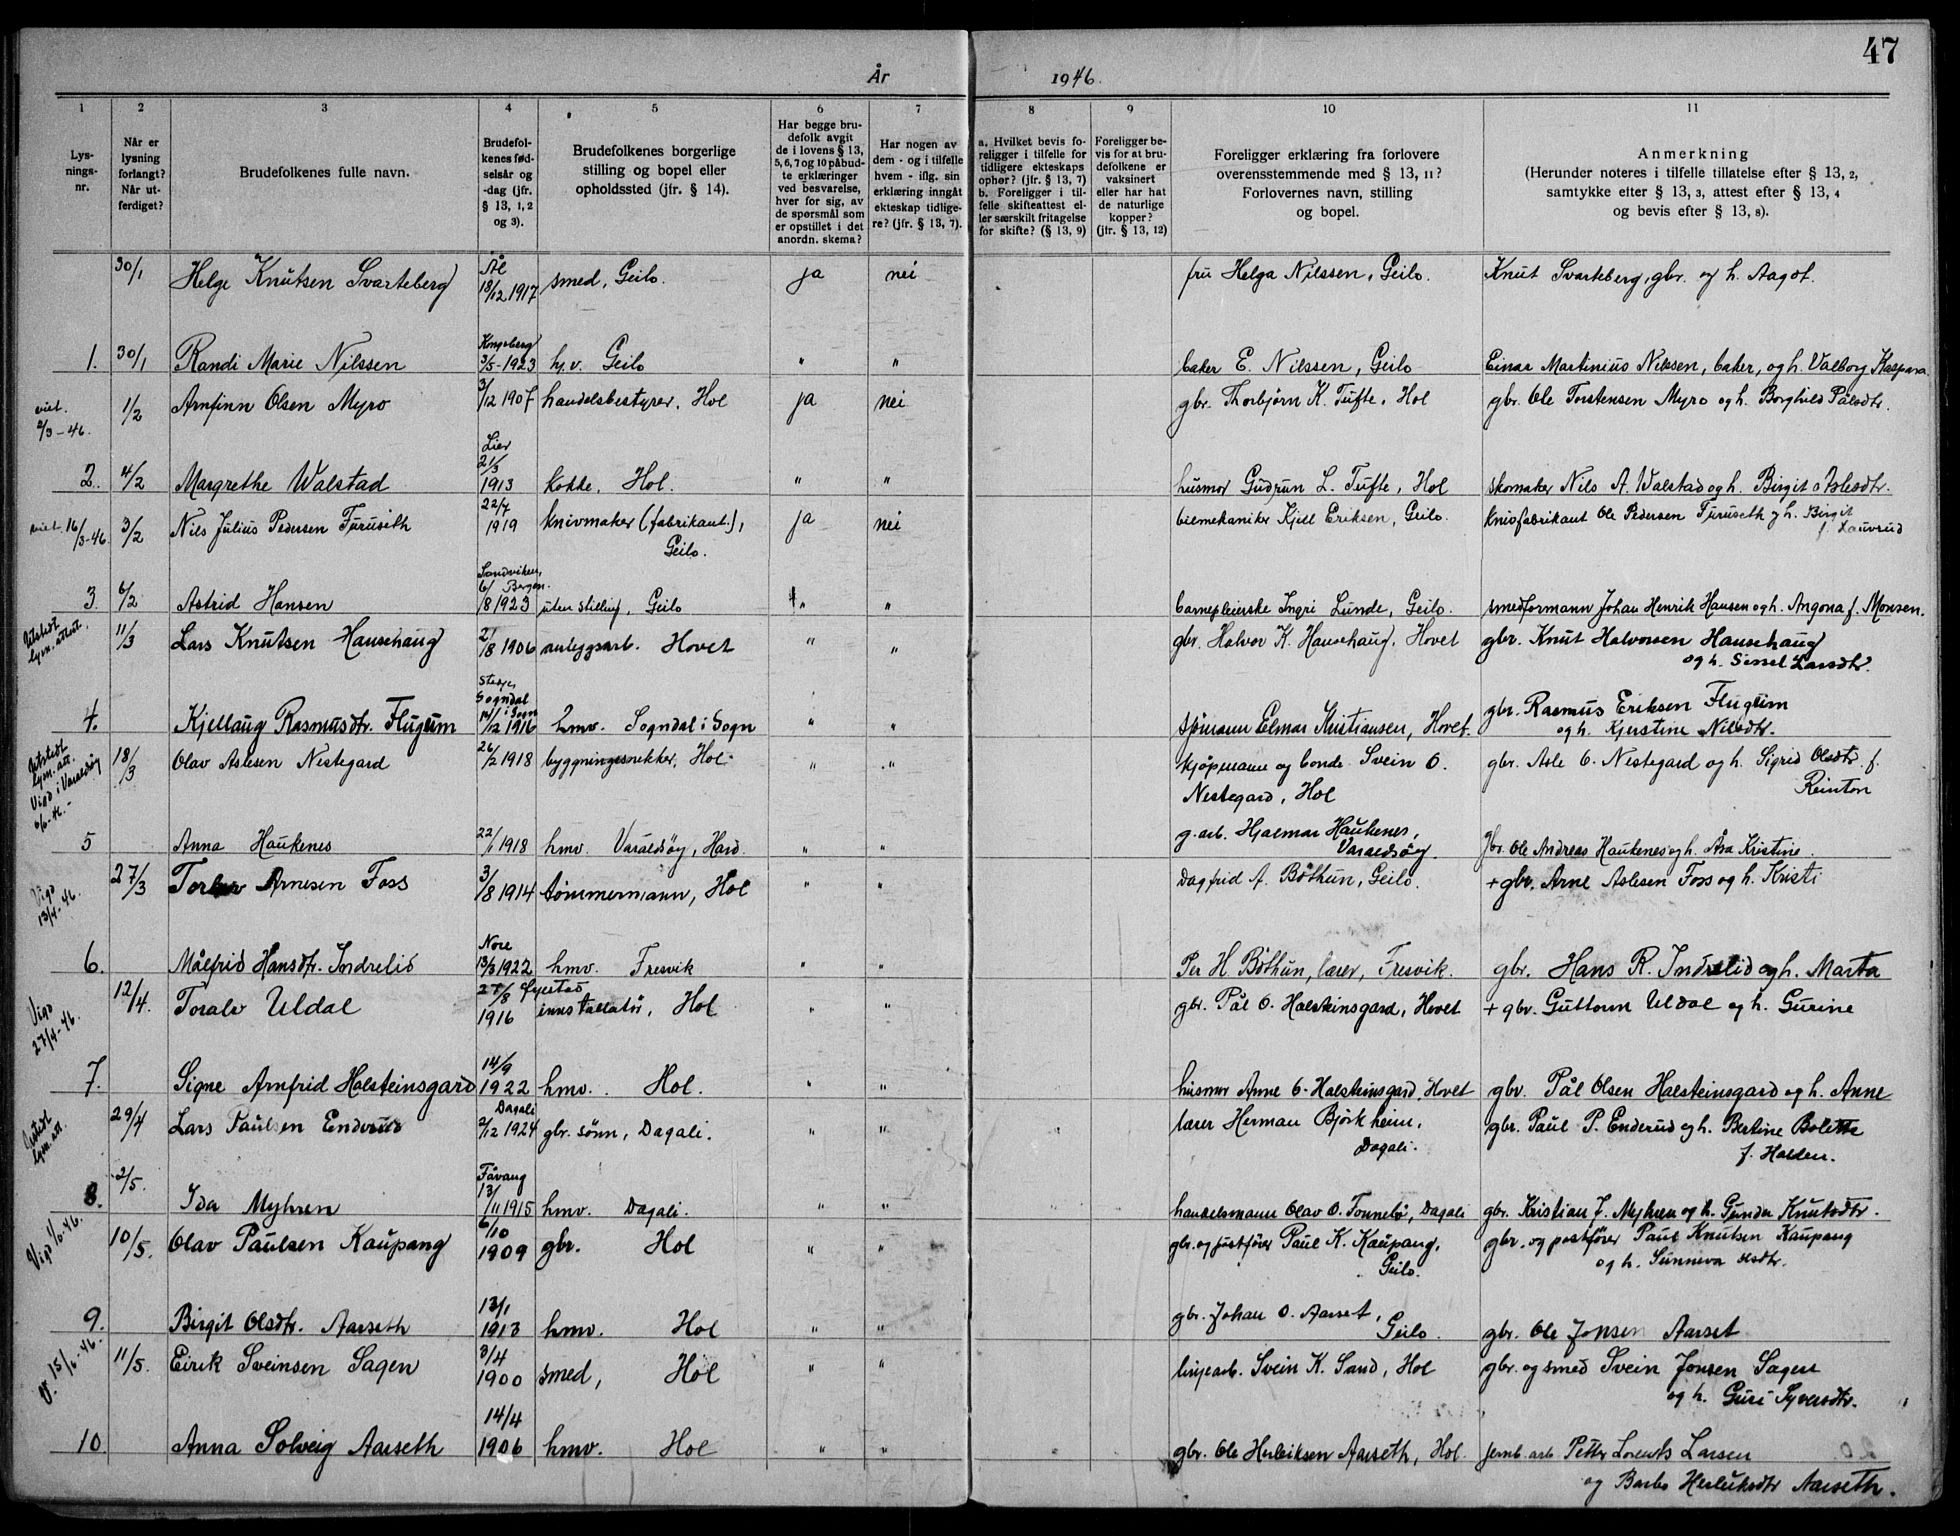 47
År 1946.
1 2 3 4 5 6 7 8 9 10 11
Lys-
nings-
nr.
Når er
lysning
forlangt?
Når ut-
ferdiget?
Brudefolkenes fulle navn.
Brudefol-
kenes fød-
selsår og
-dag (jfr.
§ 13, 1, 2
og 3).
Brudefolkenes borgerlige
stilling og bopel eller
opholdssted (jfr. § 14).
Har begge bru-
defolk avgit
de i lovens § 13,
5, 6, 7 og 10 påbud-
te erklæringer
ved besvarelse,
hver for sig, av
de spørsmål som
er opstillet i det
anordn. skema?
Har nogen av
dem - og i tilfelle
hvem - iflg. sin
erklæring inngått
ekteskap tidlige-
re? (jfr. § 13, 7).
a. Hvilket bevis fo-
religger i tilfelle for
tidligere ekteskaps
ophør? (jfr. § 13, 7)
b. Foreligger i til-
felle skifteattest el-
ler særskilt fritagelse
for skifte? (§ 13, 9)
Foreligger be-
vis for at bru-
defolkene er
vaksinert
eller har hat
de naturlige
kopper?
(jfr. § 13, 12)
Foreligger erklæring fra forlovere
overensstemmende med § 13, 11?
Forlovernes navn, stilling
og bopel.
Anmerkning
(Herunder noteres i tilfelle tillatelse efter § 13, 2,
samtykke efter § 13, 3, attest efter § 13, 4
og bevis efter § 13, 8).
30/1 Helge Knutsen Svarteberg Ål 18/12 1917 smed, Geilo. ja nei fru Helga Nilssen, Geilo. Knut Svarteberg, gbr. og h. Aagot.
1. 30/1 Randi Marie Nilssen Kongsberg 3/5-1923 hj.v. Geilo " " baker E. Nilssen, Geilo Einar Martinius Nilssen, baker, og h. Valborg Kaspara.
viet 2/3-46. 1/2 Arnfinn Olsen Myro 3/12 1907 handelsbestyrer, Hol ja nei gbr. Thorbjörn K. Tufte, Hol gbr. Ole Torstensen Myro og h. Borghild Pålsdtr.
2. 4/2 Margrethe Walstad Lier 21/3 1913 kokke, Hol. " " husmor Gudrun L. Tufte, Hol skomaker Nils A. Walstad og h. Birgit Aslesdtr.
viet 16/3-46. 3/2 Nils Julius Pedersen Furuseth 22/7 1919 knivmaker (fabrikant.), ja nei bilmekaniker Kjell Eriksen, Geilo. Knivfabrikant Ole Pedersen Furuseth og h. Birgit
Geilo. f. Lauvrud
3. 6/2 Astrid Hansen Sandviken, Bergen. 6/8 1923 uten stilling, Geilo " " barnepleierske Ingri Lunde, Geilo. smedformann Johan Henrik Hansen og h. Angona f. Monsen.
Utstedt lysn. attest. 11/3 Lars Knutsen Hansehaug 2/8 1906 anleggsarb. Hovet " " gbr. Halvor K. Hansehaug, Hovet gbr. Knut Halvorsen Hansehaug
og h. Sissel Larsdtr.
4. Kjellaug Rasmusdtr. Flugum Sogndal i Sogn /12 1916 hmv. Sogndal i Sogn " " sjömann Elmar Kristiansen, Hovet. gbr. Rasmus Eriksen Flugum
og h. Kjerstine Nilsdtr.
Utstedt lysn. att. Vigd i Varaldsøy 18/3 Olav Aslesen Nestegard 26/2 1918 byggningssnekker, Hol. " " kjöpmann og bonde Svein O. gbr. Asle O. Nestegard og h. Sigrid Olsdtr. f.
Nestegard, Hol Reinton
5 Anna Haukenes 22/1 1918 hmv. Varaldsöy, Hard. " " g.arb. Hjalmar Haukenes, gbr. Ole Andreas Haukenes og h. Åsa Kristine.
Varaldsöy.
Vigd 13/4-46. 27/3 Arnesen Foss 3/8 1914 tömmermann, Hol " " Dagfrid A. Böthun, Geilo. + gbr. Arne Aslesen Foss og h. Kristi
6. Målfrid Hansdtr. Indrelid Nore 13/3 1922 hmv. Fresvik " " Per H. Böthun, lærer, Fresvik. gbr. Hans R. Indrelid og h. Marta
Vigd 27/4-46. 12/4. Toralv Uldal 27/8 1916 Fyrstad innstallatör, Hol " " gbr. Pål O. Halsteinsgard, Hovet + gbr. Guttorm Uldal og h. Gurine
7. Signe Arnfrid Halsteinsgard 14/9 1922 hmv. Hol. " " husmor Anne O. Halsteinsgard, Hovet gbr. Pål Olsen Halsteinsgard og h. Anne
Utstedt lysn. att. 29/4 Lars Paulsen Enderud Dagali 2/12 1924 gbr. sönn, Dagali. " " lærer Herman Björkheim, gbr. Paul P. Enderud og h. Bertine Bolette
Dagali. f. Halden.
8. 2/5. Ida Myhren Fåvang 13/11 1915 hmv. Dagali. " " handelsmann Olav O. Tonnebö, Dagali gbr. Kristian J. Myhren og h. Gunda Knutsdtr.
Vigd 1/6-46. 10/5. Olav Paulsen Kaupang 6/10 1909 gbr. Hol " " gbr. og Paul K. Kaupang, gbr. og postförer Paul Knutsen Kaupang
Geilo. og h. Sunneva Olsdtr.
9. Birgit Olsdtr. Aarseth 13/1 1913 hmv. Hol " " gbr. Johan O. Aarset, gbr. Ole Jonsen Aarset
Geilo.
V. 15/6-46. 11/5. Eirik Sveinsen Sagen 3/4 1900 smed, Hol " " linjearb. Svein K. Sand, Hol gbr. og smed Svein Jonsen Sagen
og h. Guri Syversdtr.
10. Anna Solveig Aarseth 14/4 1906 hmv. Hol " " gbr. Ole Herleiksen Aarseth, Hol. jernb. arb. Petter Lorents Larsen
og Barbo Herleiksdtr Aarseth.